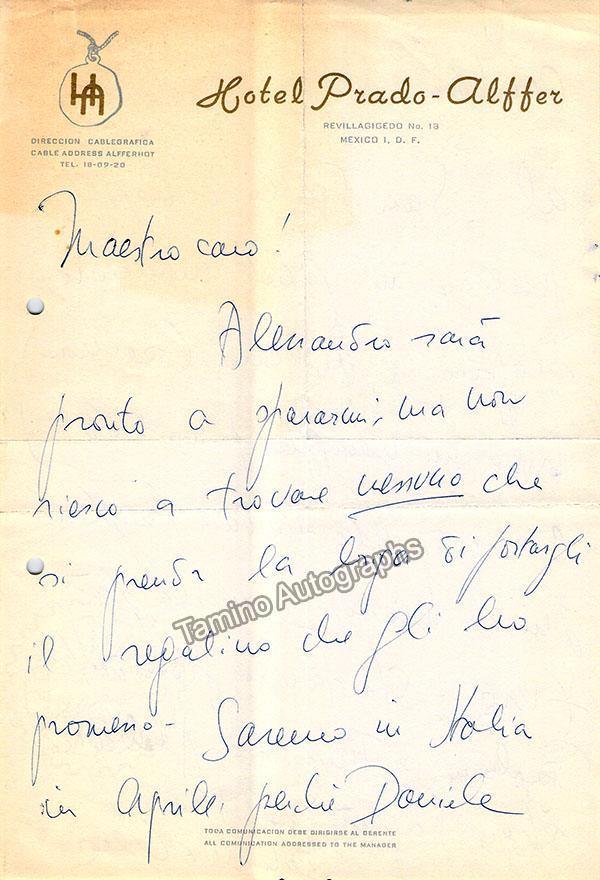 HA
Hotel Prado-Alffer
DIRECCION CABLEGRAFICA
CABLE ADDRESS ALFFERHOT
TEL. 18-09-20
REVILLAGIGEDO No. 18
MEXICO 1, D. F.
Maestro caro!
Alessandro sarà
pronto a spararmi, ma non
riesco a trovare nessuno che
si prenda la briga di portargli
il regalino che gli ho
promesso - Saremo in Italia
in Aprile perché Daniele
Tamino Autographs
TODA COMUNICACION DEBE DIRIGIRSE AL GERENTE
ALL COMMUNICATION ADDRESSED TO THE MANAGER